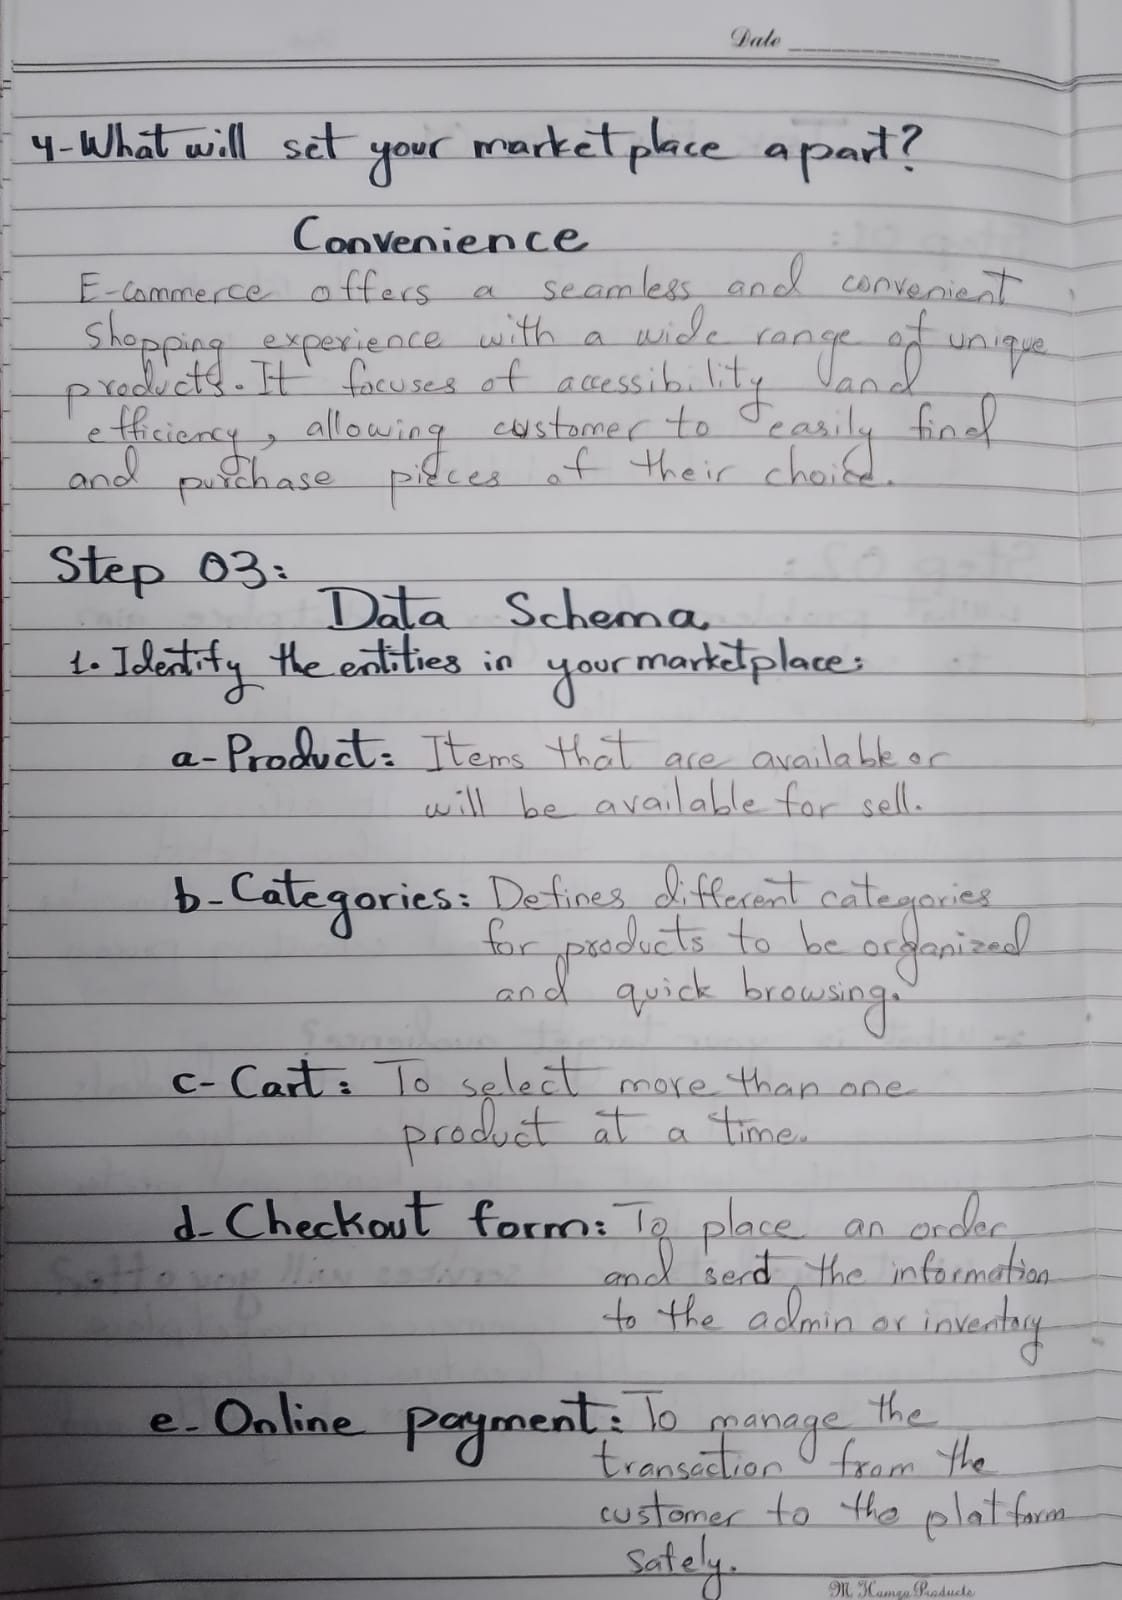 Date
4-What will set your marketplace apart?
Convenience
E-Commerce offers a seamless and convenient
shopping experience with a wide range of unique
products. It focuses of accessibility and
efficiency, allowing customer to easily find
and purchase pieces of their choice.
Step 03:
Data Schema
1. Identify the entities in your marketplace:
a- Product: Items that are available or
will be available for sell.
b- Categories: Defines different categories
for products to be organized
and quick browsing.
c- Cart: To select more than one
product at a time.
d- Checkout form: To place an order
and send the information
to the admin or inventory
e- Online payment: To manage the
transaction from the
customer to the platform
safely.
M. Hamza Products